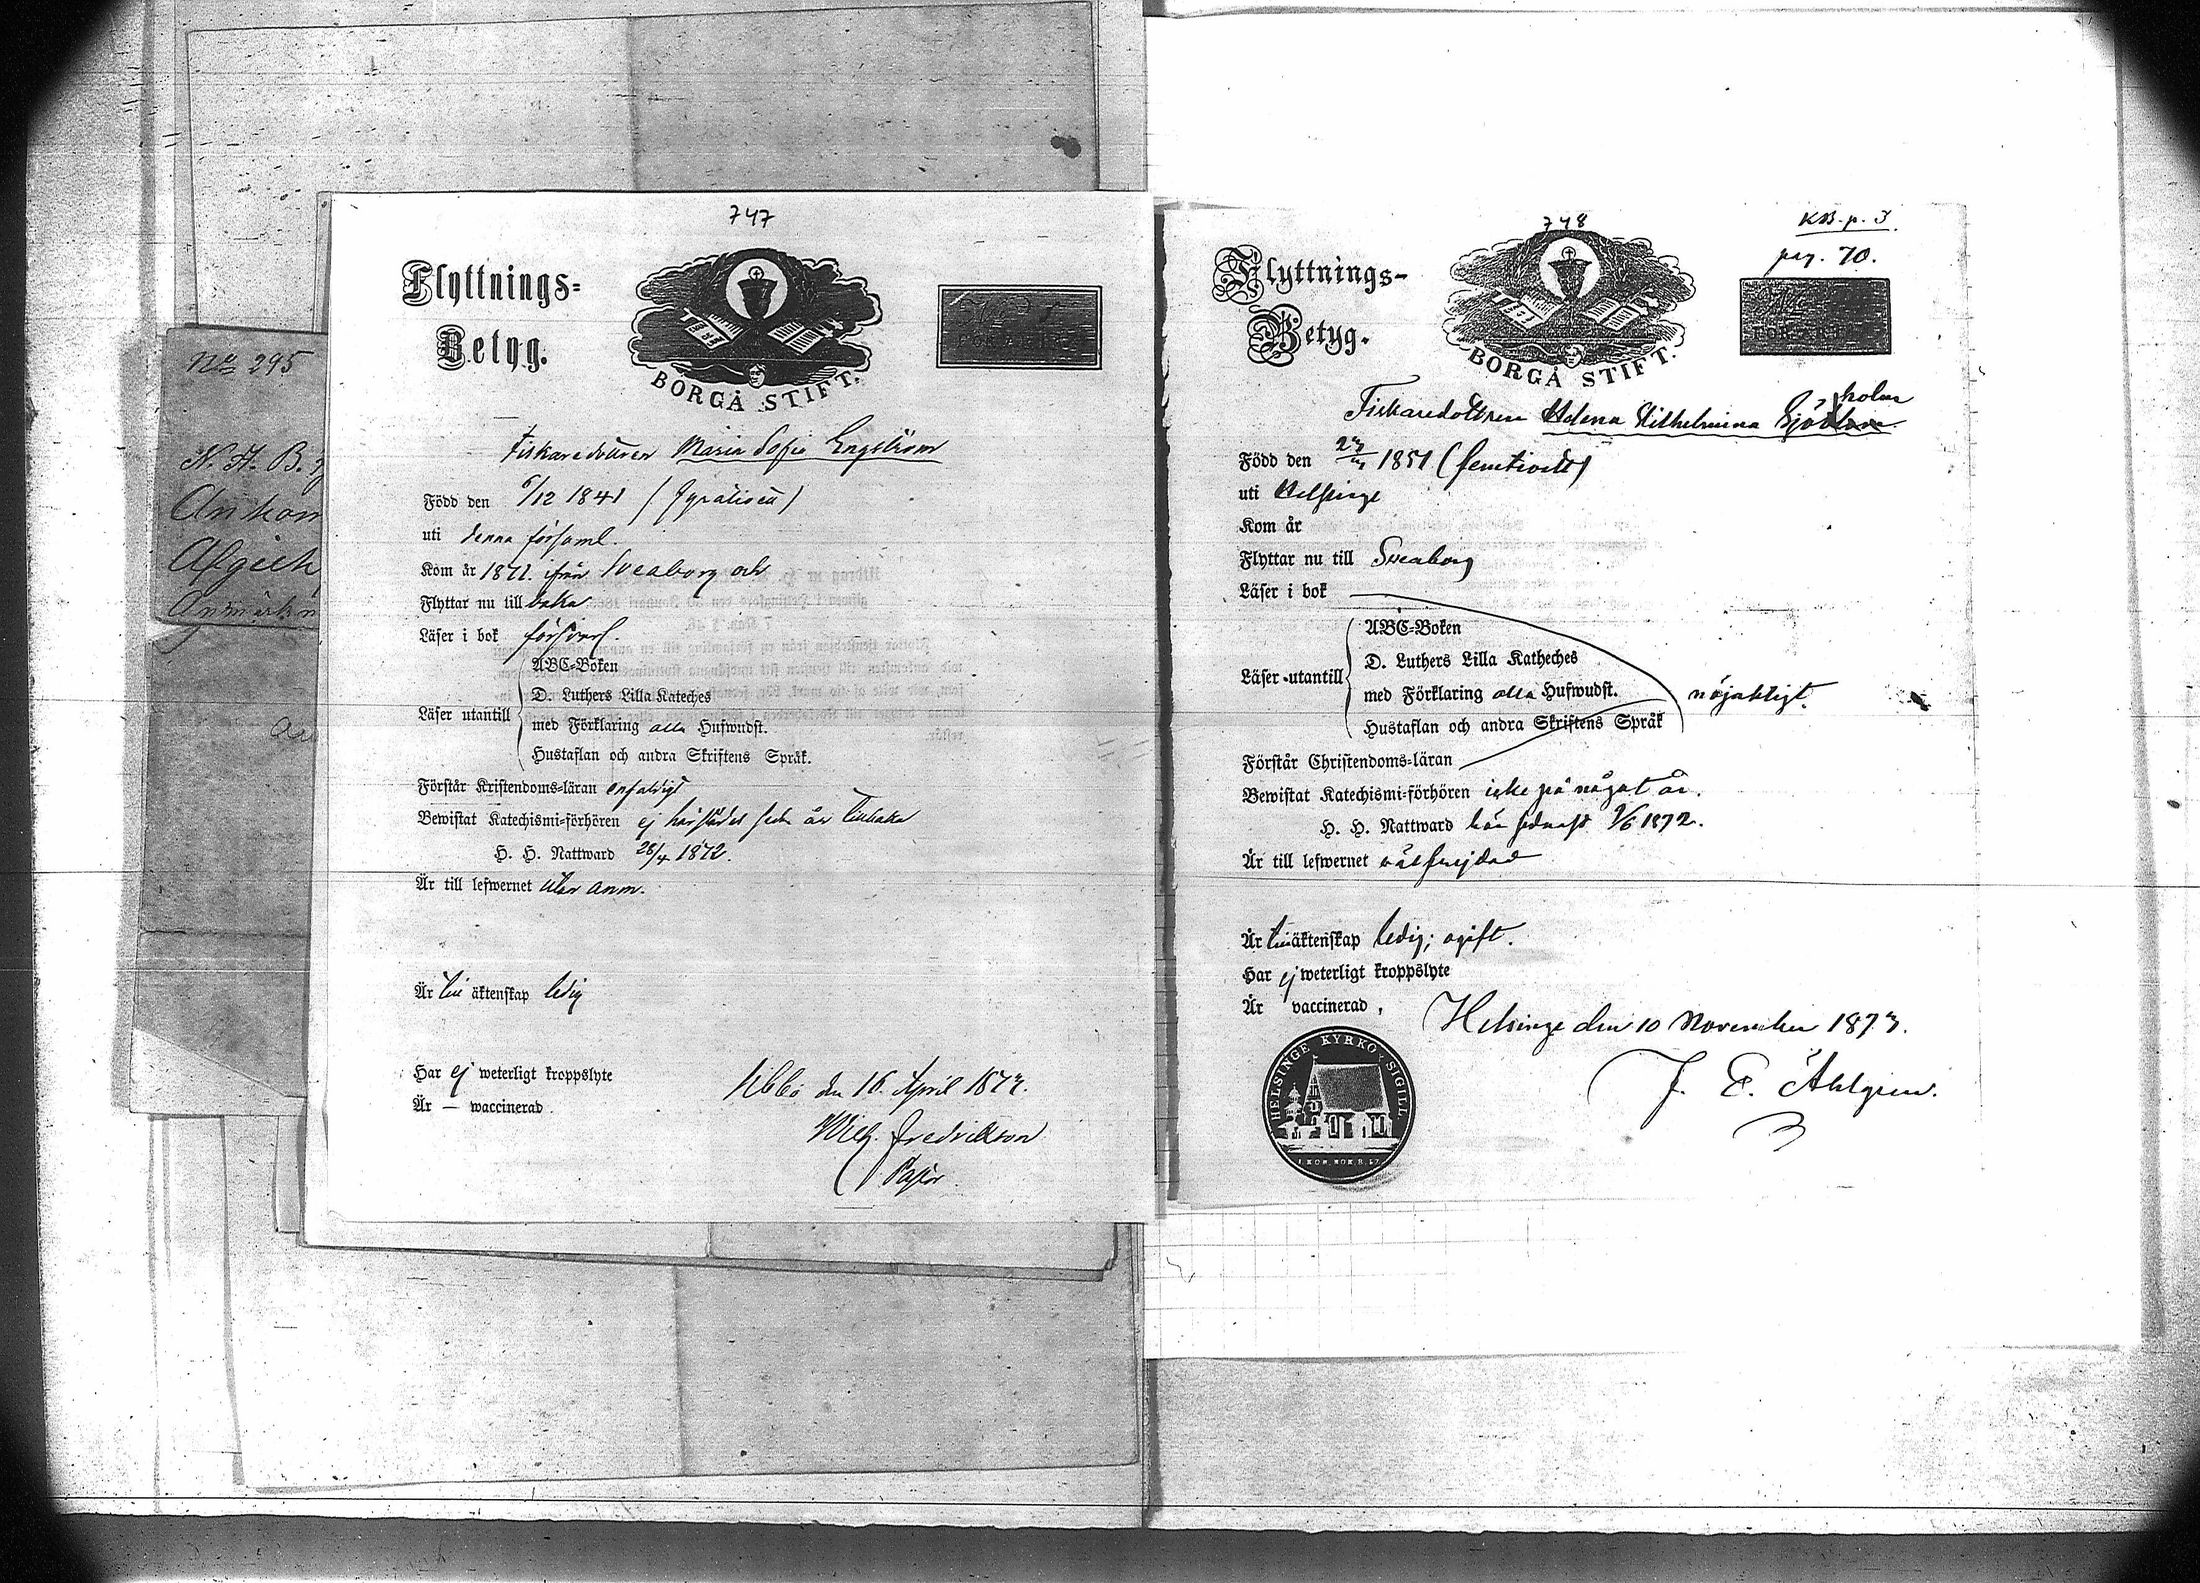 No 295
N. A. B.
Ankom
Afgick
Anmärkn
747
Flyttnings-
Betyg.
BORGÅ STIFT.
Fiskaredottren Maria Sofia Engström
Född den 6/12 1841 (fyratioett)
uti denna församl.
Kom år 1872 ifrån Sveaborg och
Flyttar nu till baka
Läser i bok försvarl.
ABC-Boken
D. Luthers Lilla Kateches
Läser utantill
med Förklaring alla Hufwudst.
Hustaflan och andra Skriftens Språk.
Förstår Kristendoms-läran enfaldigt
Bewistat Katechismi-förhören ej härstädes sedan år tillbaka
H. H. Nattward 28/4 1872.
Är till lefwernet utan anm.
Är till äktenskap ledig
Har ej weterligt kroppslyte
Är — waccinerad.
Sibbo den 16 April 1873.
Wilh. Fredrikson
Pastor.
748
KB. p. 3
pag. 70.
Flyttnings-
Betyg.
BORGÅ STIFT.
Fiskaredottren Helena Wilhelmina Sjöholm
Född den 1851 (femtioett)
uti Helsinge
Kom år
Flyttar nu till Sveaborg
Läser i bok
ABC-Boken
D. Luthers Lilla Katheches
Läser utantill
med Förklaring alla Hufwudst.
nöjaktigt.
Hustaflan och andra Skriftens Språk
Förstår Christendoms-läran
Bewistat Katechismi-förhören icke på något år.
H. H. Nattward här sednast 9/6 1872.
Är till lefwernet välfrejdad
Är till äktenskap ledig; ogift.
Har ej weterligt kroppslyte
Är vaccinerad,
Helsinge den 10 November 1873.
J. E. Åhlgren.
HELSINGE KYRKO SIGILL